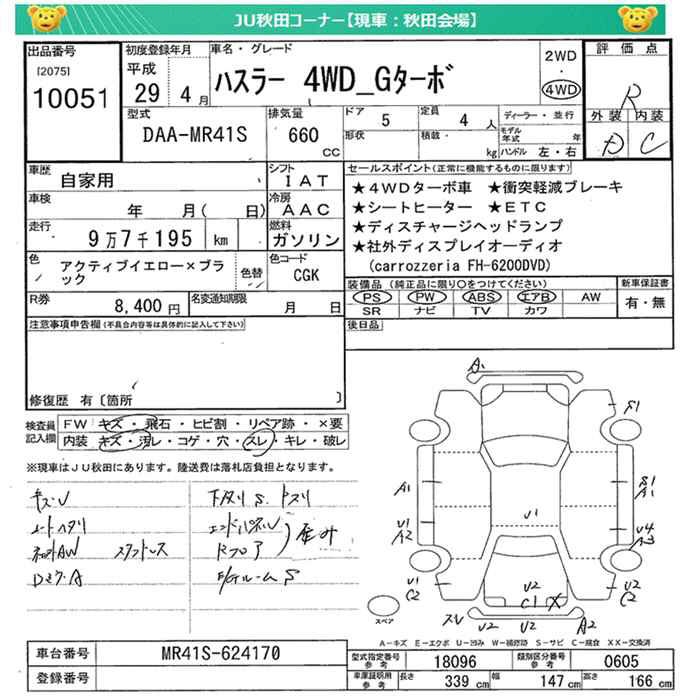 JU秋田コーナー【現車：秋田会場】
出品番号
[2075]
10051
初度登録年月
平成
29 4 月
車名・グレード
ハスラー 4WD_Gターボ
2WD
・
4WD
評価点
R
外装 内装
D C
型式
DAA-MR41S
排気量
660
CC
ドア 5
形状
定員 4 人
積載 ・ kg
ディーラー・並行
モデル年式 年
ハンドル 左・右
車歴
自家用
シフト
IAT
車検
年 月( 日)
冷房
AAC
走行
9万7千195 km
燃料
ガソリン
色
アクティブイエロー×ブラック
色替
色コード
CGK
R券
8,400 円
名変通知期限
月 日
セールスポイント(正常に機能するものに限ります)
★4WDターボ車 ★衝突軽減ブレーキ
★シートヒーター ★ETC
★ディスチャージヘッドランプ
★社外ディスプレイオーディオ
(carrozzeria FH-6200DVD)
装備品(純正品に限り○をつけてください)
PS PW ABS エアB AW
SR ナビ TV カワ
新車保証書
有・無
後日品
注意事項申告欄(不具合内容等は具体的に記入して下さい)
修復歴 有〔箇所 〕
検査員
記入欄
FW キズ・飛石・ヒビ割・リペア跡・×要
内装 キズ・汚レ・コゲ・穴・スレ・キレ・破レ
※現車はJU秋田にあります。陸送費は落札店負担となります。
キズ・U
シートヘタリ
スタッドレス
下廻り S.
エンドパネルU
Rフロア
歪み
A1
S1
A1
S1
A1
U1
A2
U1
U4
A3
U1
C2
U2
C1 X
U2
C2
スレ
U2 U2
A2
スペア
A－キズ E－エクボ U－凹み W－補修跡 S－サビ C－腐食 XX－交換済
車台番号
MR41S-624170
登録番号
型式指定番号
参考
18096
類別区分番号
参考
0605
車庫証明用
参考
長さ 339 cm
幅 147 cm
高さ 166 cm